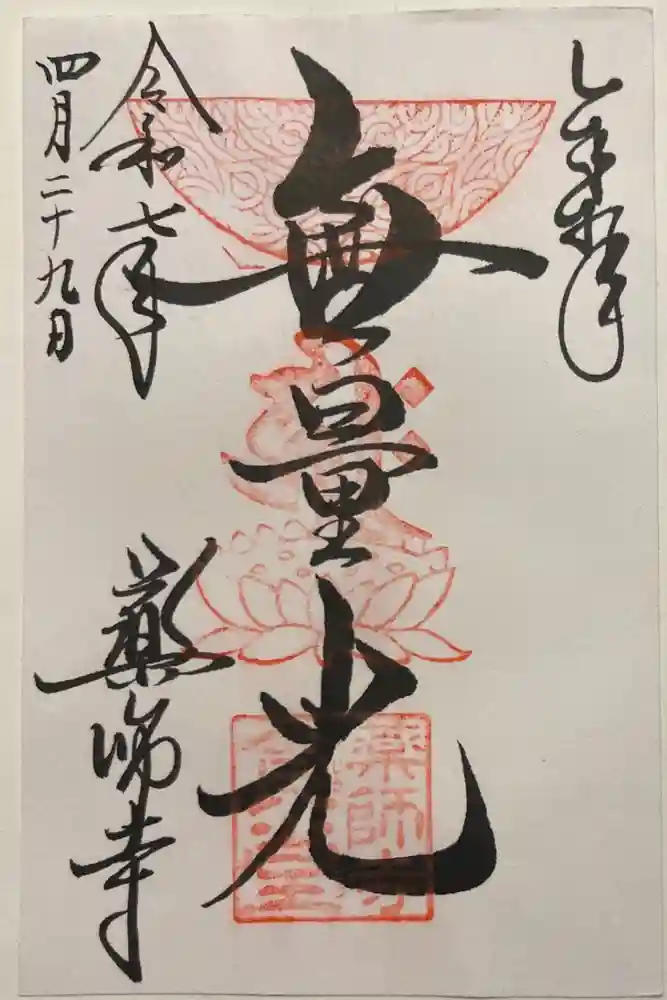 奉拝
無量光
令和七年
四月二十九日
薬師寺